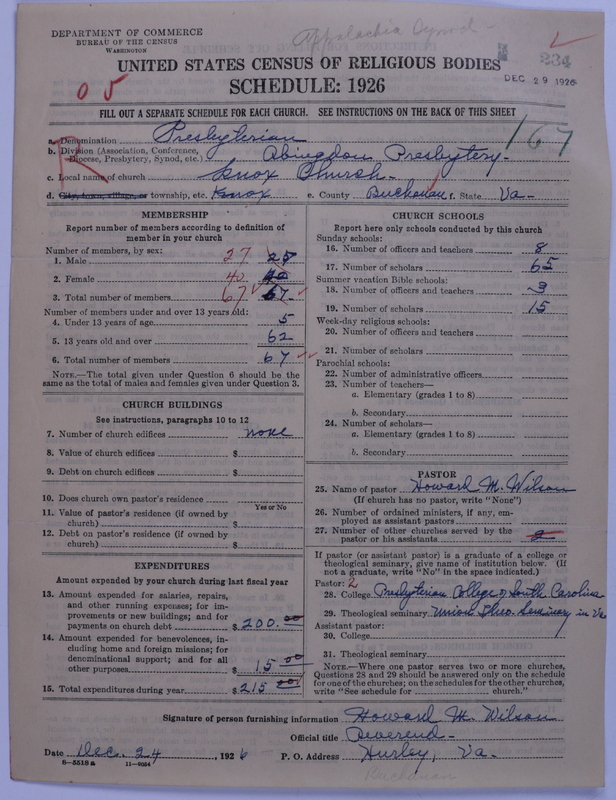 Appalachia Synod-
DEPARTMENT OF COMMERCE
BUREAU OF THE CENSUS
WASHINGTON
234
UNITED STATES CENSUS OF RELIGIOUS BODIES
DEC 29 1926
SCHEDULE: 1926
05
FILL OUT A SEPARATE SCHEDULE FOR EACH CHURCH. SEE INSTRUCTIONS ON THE BACK OF THIS SHEET
167
R
a. Denomination Presbyterian
b. Division (Association, Conference, Diocese, Presbytery, Synod, etc.) Abingdon Presbytery-
c. Local name of church Knox Church-
d. City, town, village, or township, etc. Knox e. County Buchanan f. State Va-
MEMBERSHIP
Report number of members according to definition of
member in your church
Number of members, by sex:
1. Male 27 25
2. Female 40
3. Total number of members 67 67
Number of members under and over 13 years old:
4. Under 13 years of age 5
5. 13 years old and over 62
6. Total number of members 67
NOTE.—The total given under Question 6 should be the
same as the total of males and females given under Question 3.
CHURCH BUILDINGS
See instructions, paragraphs 10 to 12
7. Number of church edifices none
8. Value of church edifices $
9. Debt on church edifices $
10. Does church own pastor's residence
Yes or No
11. Value of pastor's residence (if owned by
church) $
12. Debt on pastor's residence (if owned by
church) $
EXPENDITURES
Amount expended by your church during last fiscal year
13. Amount expended for salaries, repairs,
and other running expenses; for im-
provements or new buildings; and for
payments on church debt $ 200.00
14. Amount expended for benevolences, in-
cluding home and foreign missions; for
denominational support; and for all
other purposes $ 15 00
15. Total expenditures during year $ 215 00
CHURCH SCHOOLS
Report here only schools conducted by this church
Sunday schools:
16. Number of officers and teachers 8
17. Number of scholars 65
Summer vacation Bible schools:
18. Number of officers and teachers 3
19. Number of scholars 15
Week-day religious schools:
20. Number of officers and teachers
21. Number of scholars
Parochial schools:
22. Number of administrative officers
23. Number of teachers—
a. Elementary (grades 1 to 8)
b. Secondary
24. Number of scholars—
a. Elementary (grades 1 to 8)
b. Secondary
PASTOR
25. Name of pastor Howard M. Wilson
(If church has no pastor, write "None")
26. Number of ordained ministers, if any, em-
ployed as assistant pastors
27. Number of other churches served by the
pastor or his assistants 2
If pastor (or assistant pastor) is a graduate of a college or
theological seminary, give name of institution below. (If
not a graduate, write "No" in the space indicated.)
Pastor: 2
28. College Presbyterian College of South Carolina
29. Theological seminary Union Theo. Seminary in Va
Assistant pastor:
30. College
31. Theological seminary
NOTE.—Where one pastor serves two or more churches,
Questions 28 and 29 should be answered only on the schedule
for one of the churches; on the schedules for the other churches,
write "See schedule for ........ church."
Signature of person furnishing information Howard M. Wilson
Official title Reverend-
Date Dec. 24, 1926 P. O. Address Hurley, Va.
8-5518a 11-9084
Buchanan